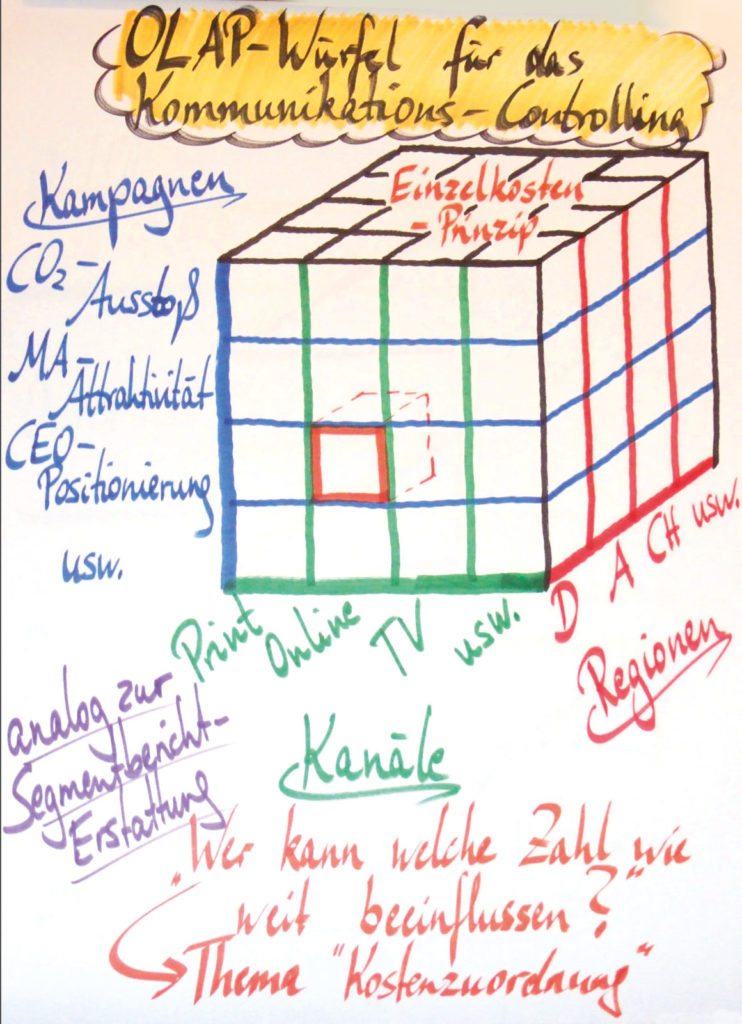 OLAP-Würfel für das
Kommunikations-Controlling
Kampagnen
CO₂-
Ausstoß
MA-
Attraktivität
CEO-
Positionierung
usw.
Einzelkosten
-Prinzip
Print
Online
TV
usw.
Kanäle
D A CH usw.
Regionen
analog zur
Segmentbericht-
Erstattung
"Wer kann welche Zahl wie
weit beeinflussen?"
Thema "Kostenzuordnung"